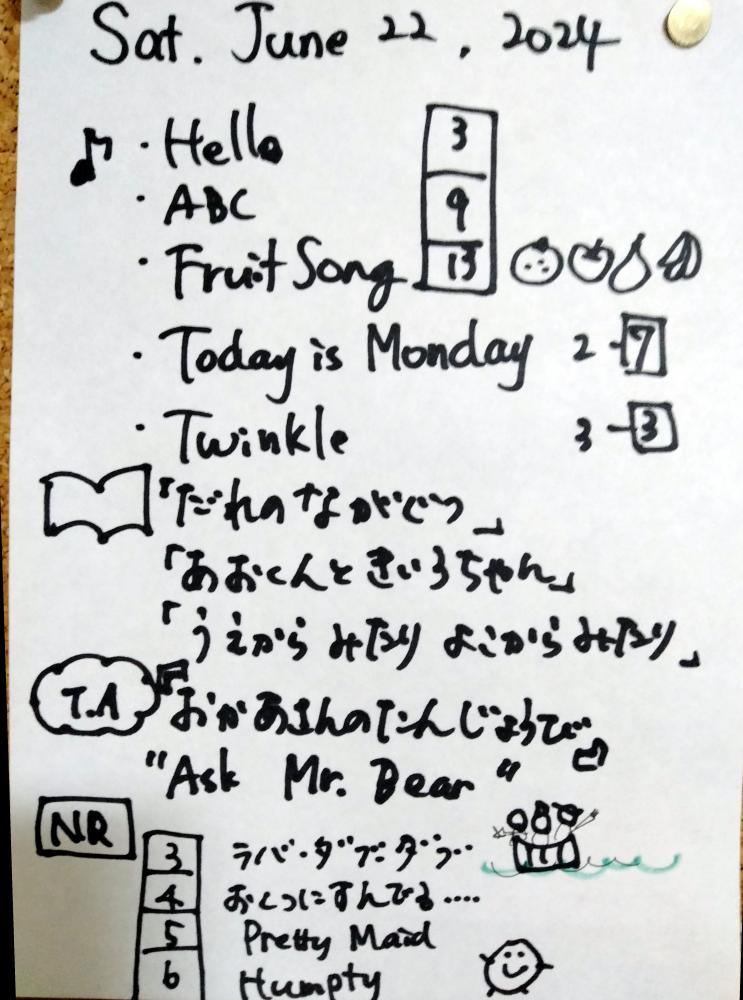 Sat. June 22, 2024
♪ ・Hello 3
・ABC 9
・Fruit Song 13
・Today is Monday 2-7
・Twinkle 3-3
「だれのながぐつ」
「あおくんときいろちゃん」
「うえからみたり よこからみたり」
T.A ♫おかあさんのたんじょうび
"Ask Mr. Bear"
NR
3 ラバ・ダブ・ダブ・・
4 おくつにすんでる‥‥
5 Pretty Maid
6 Humpty